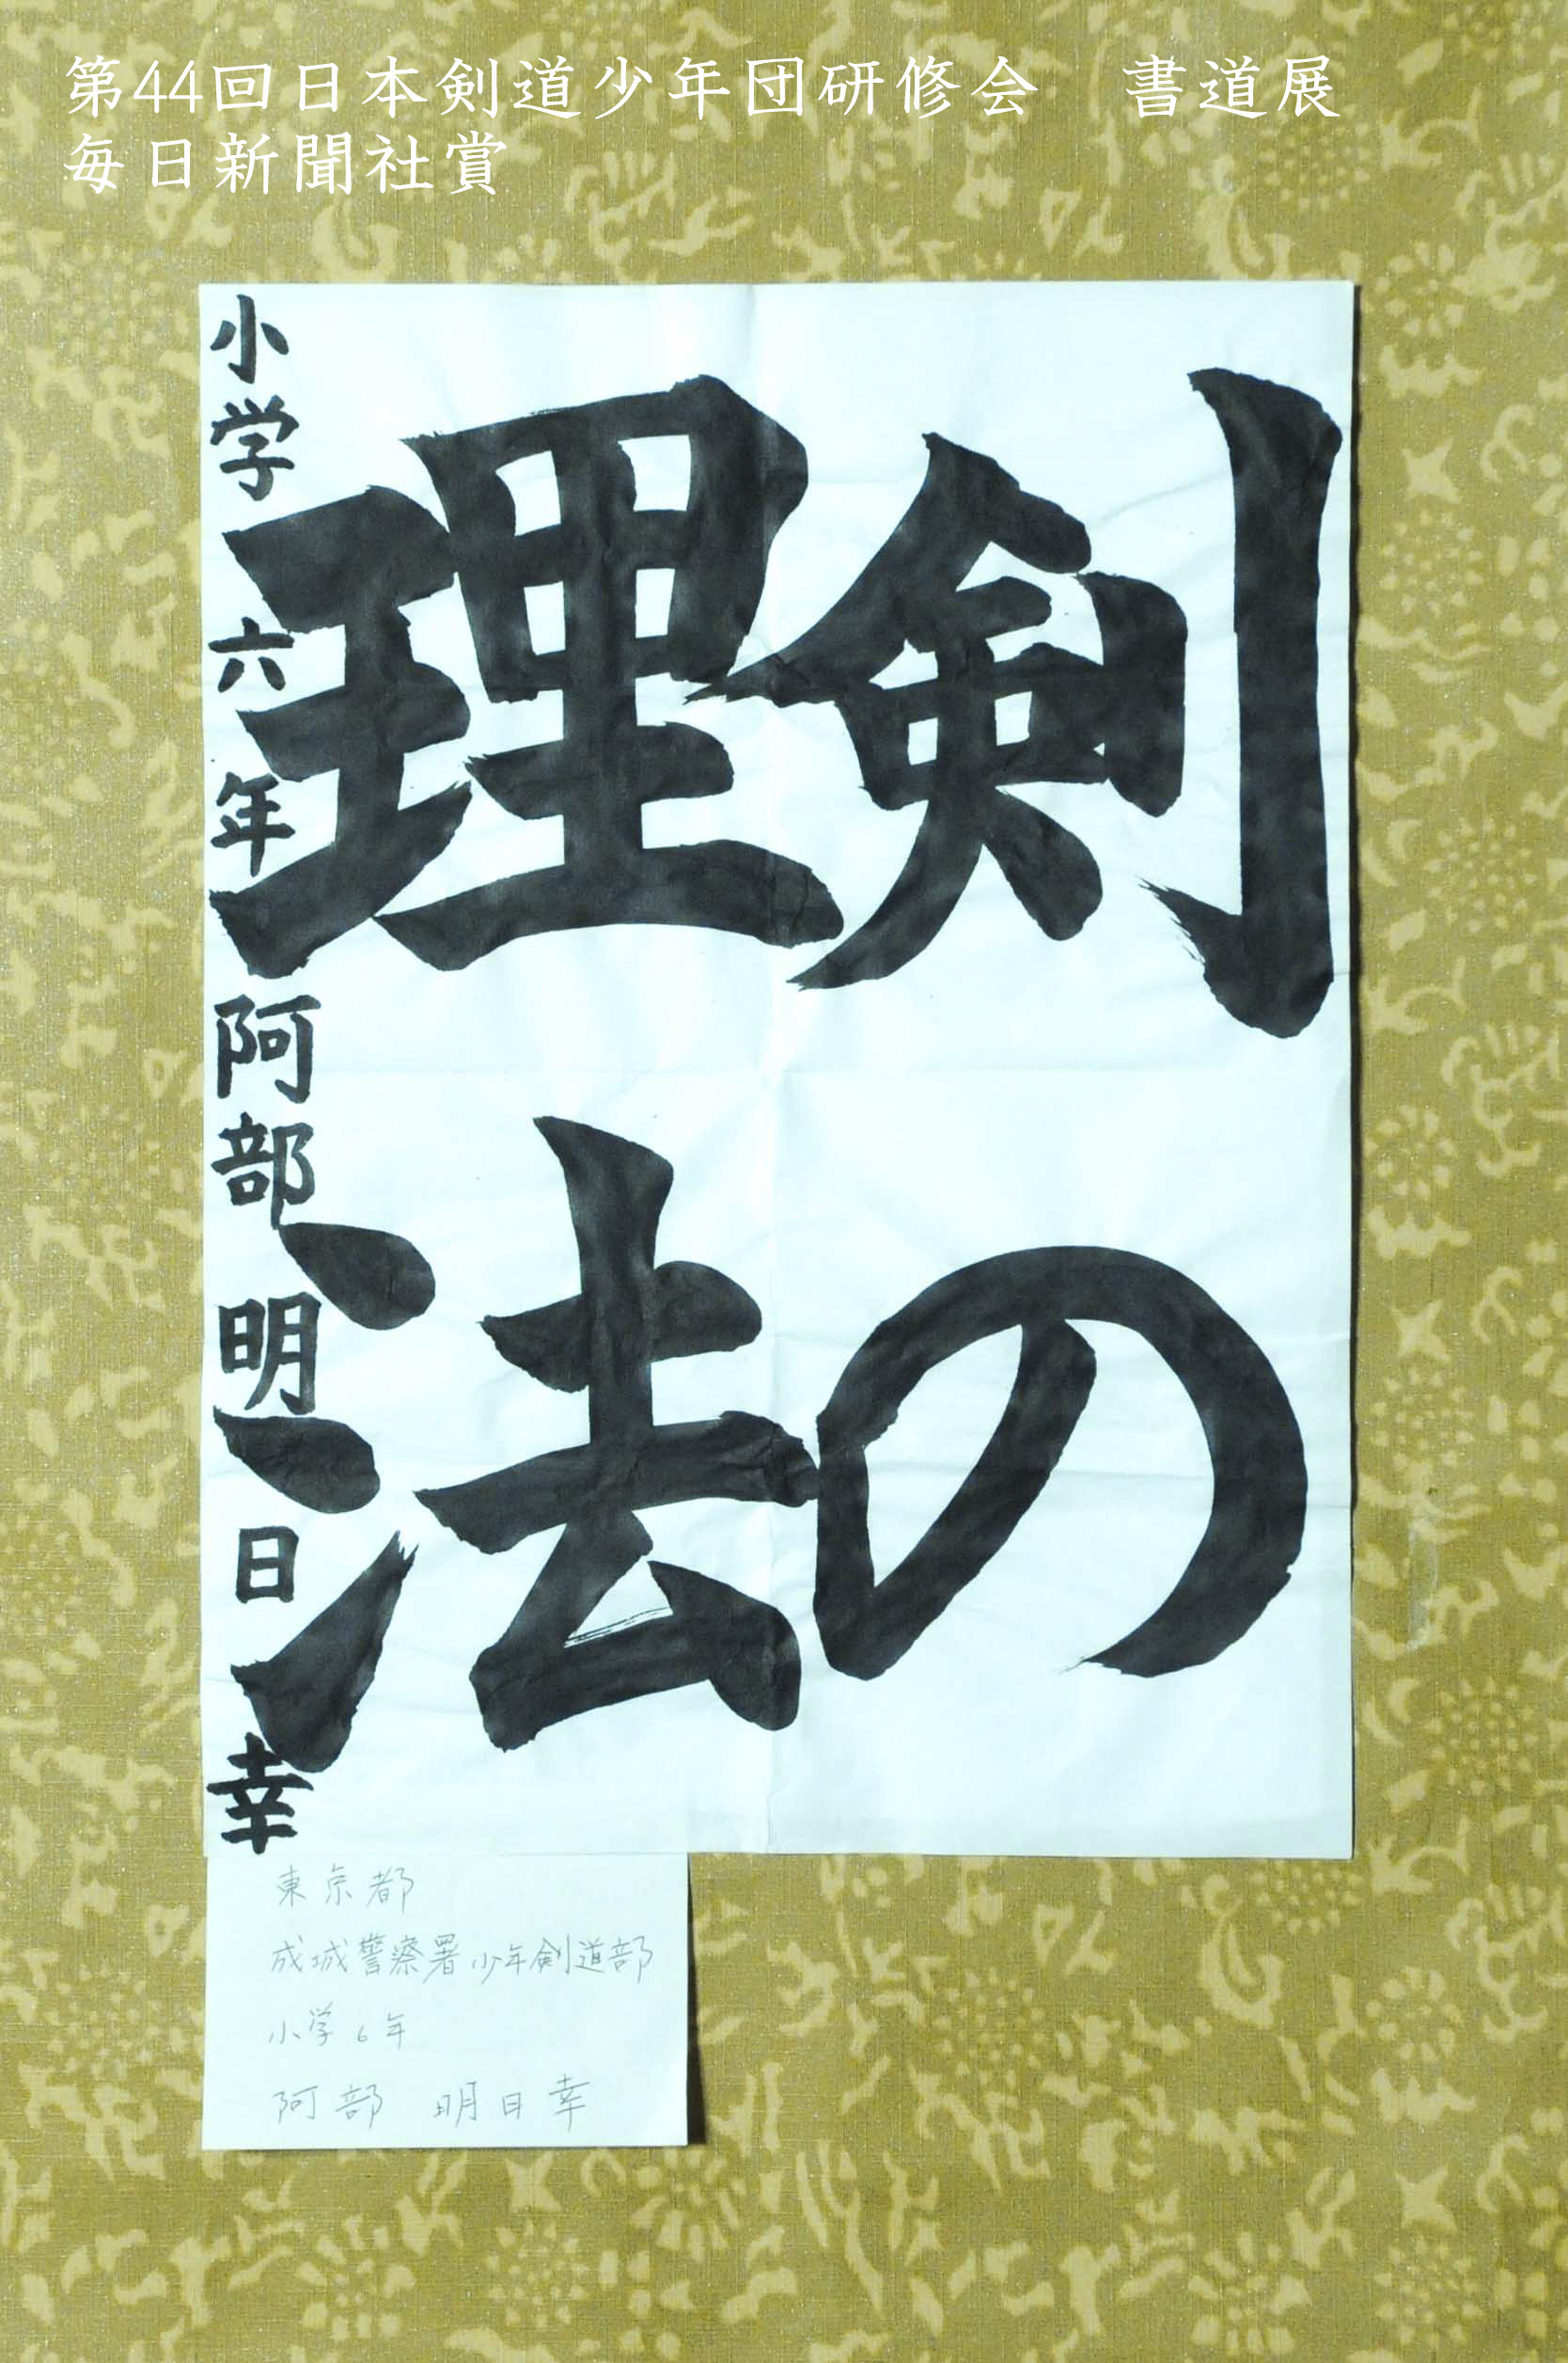 第44回日本剣道少年団研修会　書道展
毎日新聞社賞
剣の
理法
小学六年阿部明日幸
東京都
成城警察署少年剣道部
小学6年
阿部　明日幸